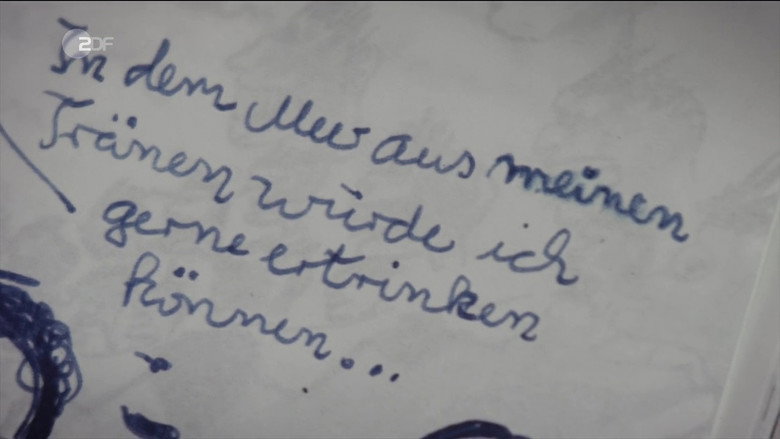 ZDF
In dem Meer aus meinen
Tränen würde ich
gerne ertrinken
können...